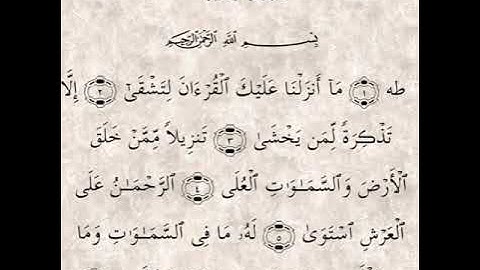 بِسْمِ ٱللَّهِ ٱلرَّحْمَٰنِ ٱلرَّحِيمِ
طه ١ مَآ أَنزَلْنَا عَلَيْكَ ٱلْقُرْءَانَ لِتَشْقَىٰٓ ٢ إِلَّا
تَذْكِرَةً لِّمَن يَخْشَىٰ ٣ تَنزِيلاً مِّمَّنْ خَلَقَ
ٱلْأَرْضَ وَٱلسَّمَٰوَٰتِ ٱلْعُلَى ٤ ٱلرَّحْمَٰنُ عَلَى
ٱلْعَرْشِ ٱسْتَوَىٰ ٥ لَهُۥ مَا فِى ٱلسَّمَٰوَٰتِ وَمَا